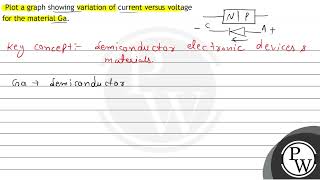 Plot a graph showing variation of current versus voltage
for the material Ga.
N P
- C A +
Key concept:- Semiconductor electronic devices &
materials.
Ga → Semiconductor
P
W